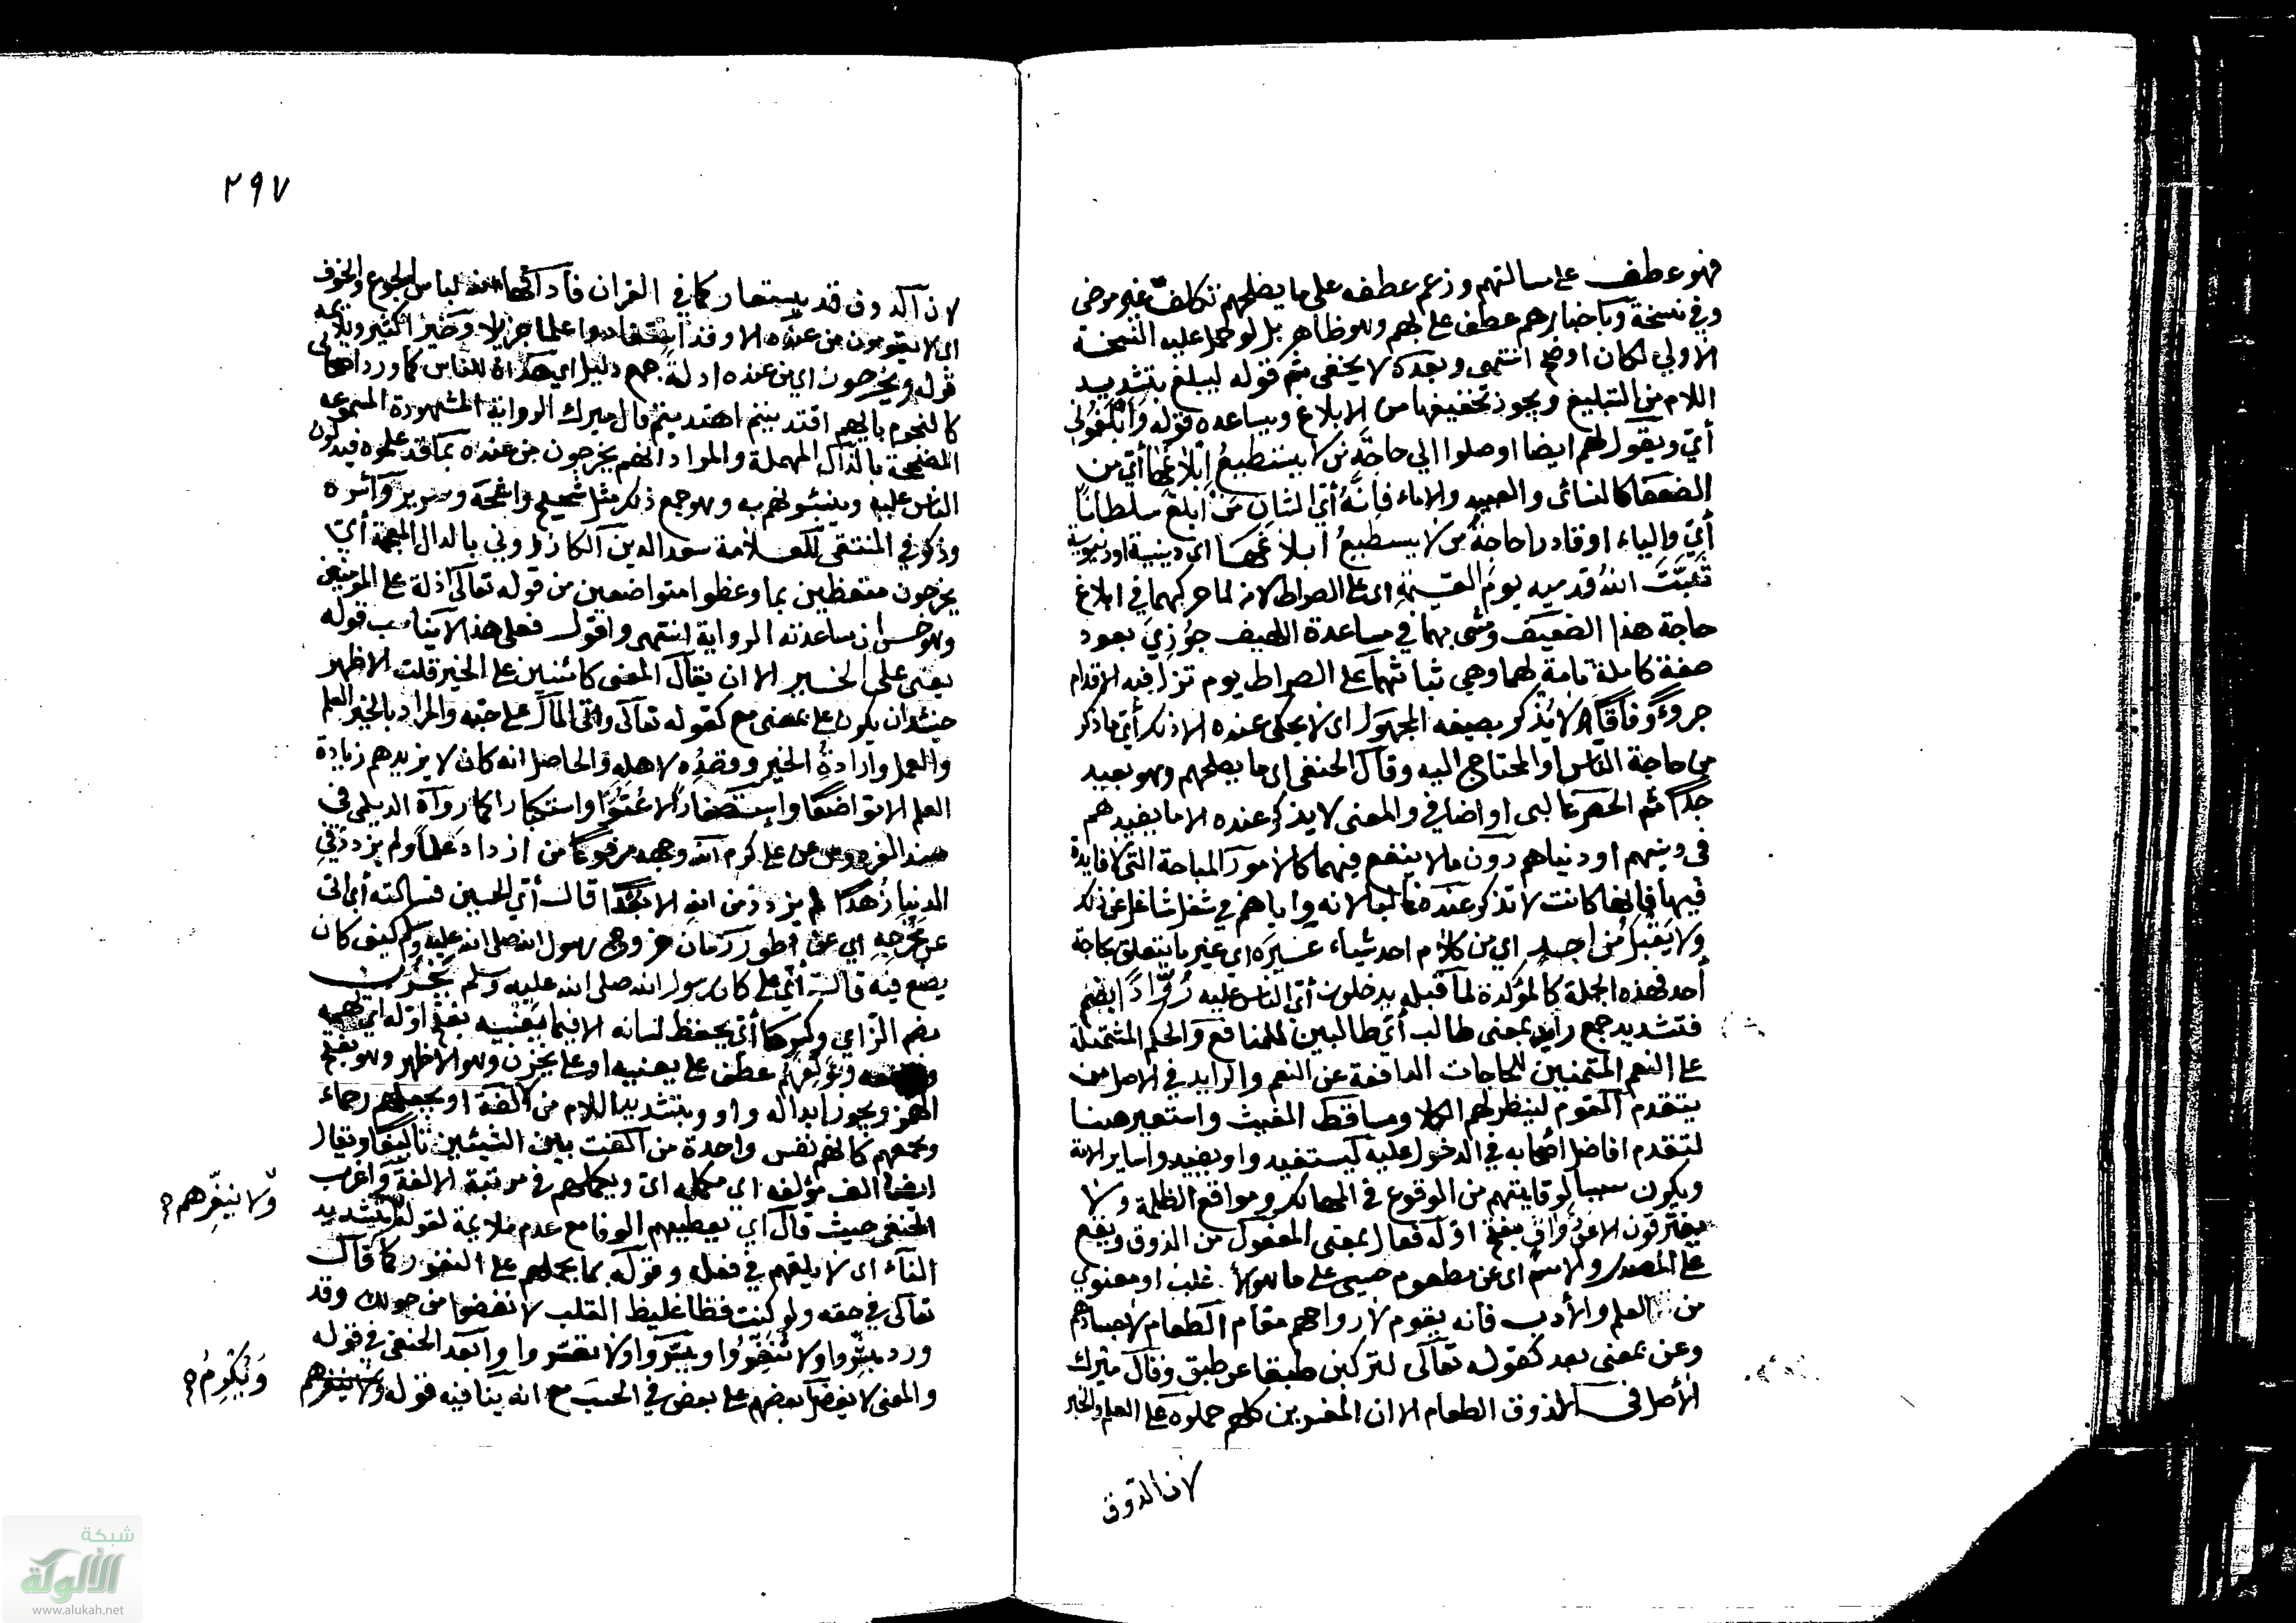 فهو عطف على مسالتهم وزعم عطفه على ما يصلحهم تكلف غير مرضي
وفي نسخة وباخبارهم عطف على بهم وهو ظاهر بل لو حمل عليه النسخة
الاولي لكان اوضح انتهى وبعده لا يخفى ثم قوله ليبلغ بتشديد
اللام من التبليغ ويجوز تخفيفها من الابلاغ ويساعده قوله وابلغوني
أي ويقول لهم ايضا اوصلوا الي حاجة من لا يستطيع ابلاغها أي من
الضعفا كالنسائى والعبيد والاماء فانه أي الشان من ابلغ سلطانا
أي واليا اوقادرا حاجة من لا يستطيع ابلاغها اى دينية او دنيوية
ثبت الله قدميه يوم القيمة اى على الصراط لانه لما حركهما في ابلاغ
حاجة هذا الضعيف ومشى بهما في مساعدة اللهيف جوزي بعود
صفة كاملة تامة لهما وهي ثباتهما على الصراط يوم تزل فيه الاقدام
جزوءً وفاقًا ولا يذكر بصيغه المجهول اى لا يحكى عنده الا ذلك أي ما ذكر
من حاجة الناس او المحتاج اليه وقال الحنفى اى ما يصلحهم وهو بعيد
جدا ثم الحصر غالبى او اضافي والمعنى لا يذكر عنده الا ما يفيدهم
فى دينهم او دنياهم دون ما لا ينفع فيهما كالامور المباحة التى لا فايدة
فيها فانها كانت لا تذكر عنده غالبا لانه واياهم في شغل شاغل عن ذلك
ولا يقبل من احد اي من كلام احد شياء غيره اى غير ما يتعلق بحاجة
أحد فهذه الجملة كالمؤكدة لما قبله يدخلون أي الناس عليه رُوّادًا بضم
فتشديد جمع رايد بمعنى طالب أي طالبين للمنافع والحكم المشتملة
على النعم المتمنين للحاجات الدافعة عن النقم والرايد في الاصل من
يتقدم القوم لينظر لهم الكلا ومساقط الغيث واستعير هنا
لتقدم افاضل اصحابه في الدخول عليه ليستفيدوا ويفيدوا ساير الامة
ويكون سببا لوقايتهم من الوقوع في المهالك ومواقع الظلمة ولا
يفترقون الا عن ذواق بفتح اوله فعال بمعنى المفعول من الذوق ويقع
على المصدر والاسم اى عن مطعوم حسي على ما هو الاغلب او معنوي
من العلم والأدب فانه يقوم لارواحهم مقام الطعام لاجسادهم
وعن بمعنى بعد كقوله تعالى لتركبن طبقا عن طبق وقال ميرك
الأصل في الذوق الطعام الا ان المفسرين كلهم حملوه على العلم والخير
لان الذوق
٢٩٧
لان الذوق قد يستعار كما في القران فأذاقها الله لباس الجوع والخوف
اى لا يقومون من عنده الا وقد استفادوا علما جزيلا وخيرا كثيرا ويلائمه
قوله ويخرجون اي من عنده ادلة جمع دليل اي هداة للناس كما ورد اصحابي
كالنجوم بايهم اقتديتم اهتديتم قال ميرك الرواية المشهورة المسموعه
المصححة بالدال المهملة والمراد انهم يخرجون من عنده بما قد علموه فيدلون
الناس عليه وينبئونهم به وهو جمع ذلك مثل شحيح واشحة وسرير واسره
وذكر في المنتقى للعلامة سعد الدين الكازروني بالذال المعجمة أي
يخرجون متعظين بما وعظوا متواضعين من قوله تعالى اذلة على المؤمنين
وهو حسن ان ساعدته الرواية انتهى واقول فعلى هذا لا يناسب قوله
يعني على الخير الا ان يقال المعنى كائنين على الخير قلت الاظهر
حينئذ ان يكون على بمعنى مع كقوله تعالى واتى المال على حبه والمراد بالخير العلم
والعمل وارادة الخير وقصده لاهله والحاصل انه كان لا يزيدهم زيادة
العلم الا تواضعا واستصغارا لا عتوا واستكبارا كما رواه الديلمي في
مسند الفردوس عن علي كرم الله وجهه مرفوعا من ازداد علما ولم يزدد في
الدنيا زهدًا لم يزدد من الله الا بعدًا قال أي الحسين فسالته أي ابى
عن مخرجه اي عن اطوار زمان خروج رسول الله صلى الله عليه وسلم كيف كان
يصنع فيه قال أي علي كان رسول الله صلى الله عليه وسلم يخزن
بضم الزاي وكسرها أي يحفظ لسانه الا فيما يعنيه بفتح اوله اي يهمه
ويؤلفهم عطف على يعنيه او على يخزن وهو الاظهر وهو بفتح
الهمز ويجوز ابداله واو وبتشديد اللام من الالفة او يجعلهم رحماء
ويجمعهم كانهم نفس واحدة من الفت بين الشيئين تأليفا ويقال
ايضا الف مؤلفه اي مكمله اي ويكملهم في مرتبة الالفة واغرب
ولا ينفّرهم
الحنفى حيث قال اي يعطيهم الوفا مع عدم ملايمة لقوله بتشديد
الفاء اى لا يلقهم في فعله وقوله بما يحملهم على النفور كما قال
تعالى في حقه ولو كنت فظا غليظ القلب لانفضوا من حولك وقد
ورد بشروا ولا تنفروا ويسروا ولا تعسروا وابعد الحنفى في قوله
والمعنى لا يفضل بعضهم على بعض في الحسب مع انه ينافيه قوله ولا ينفرهم
ويُكرِمُ
شبكة
الألوكة
www.alukah.net